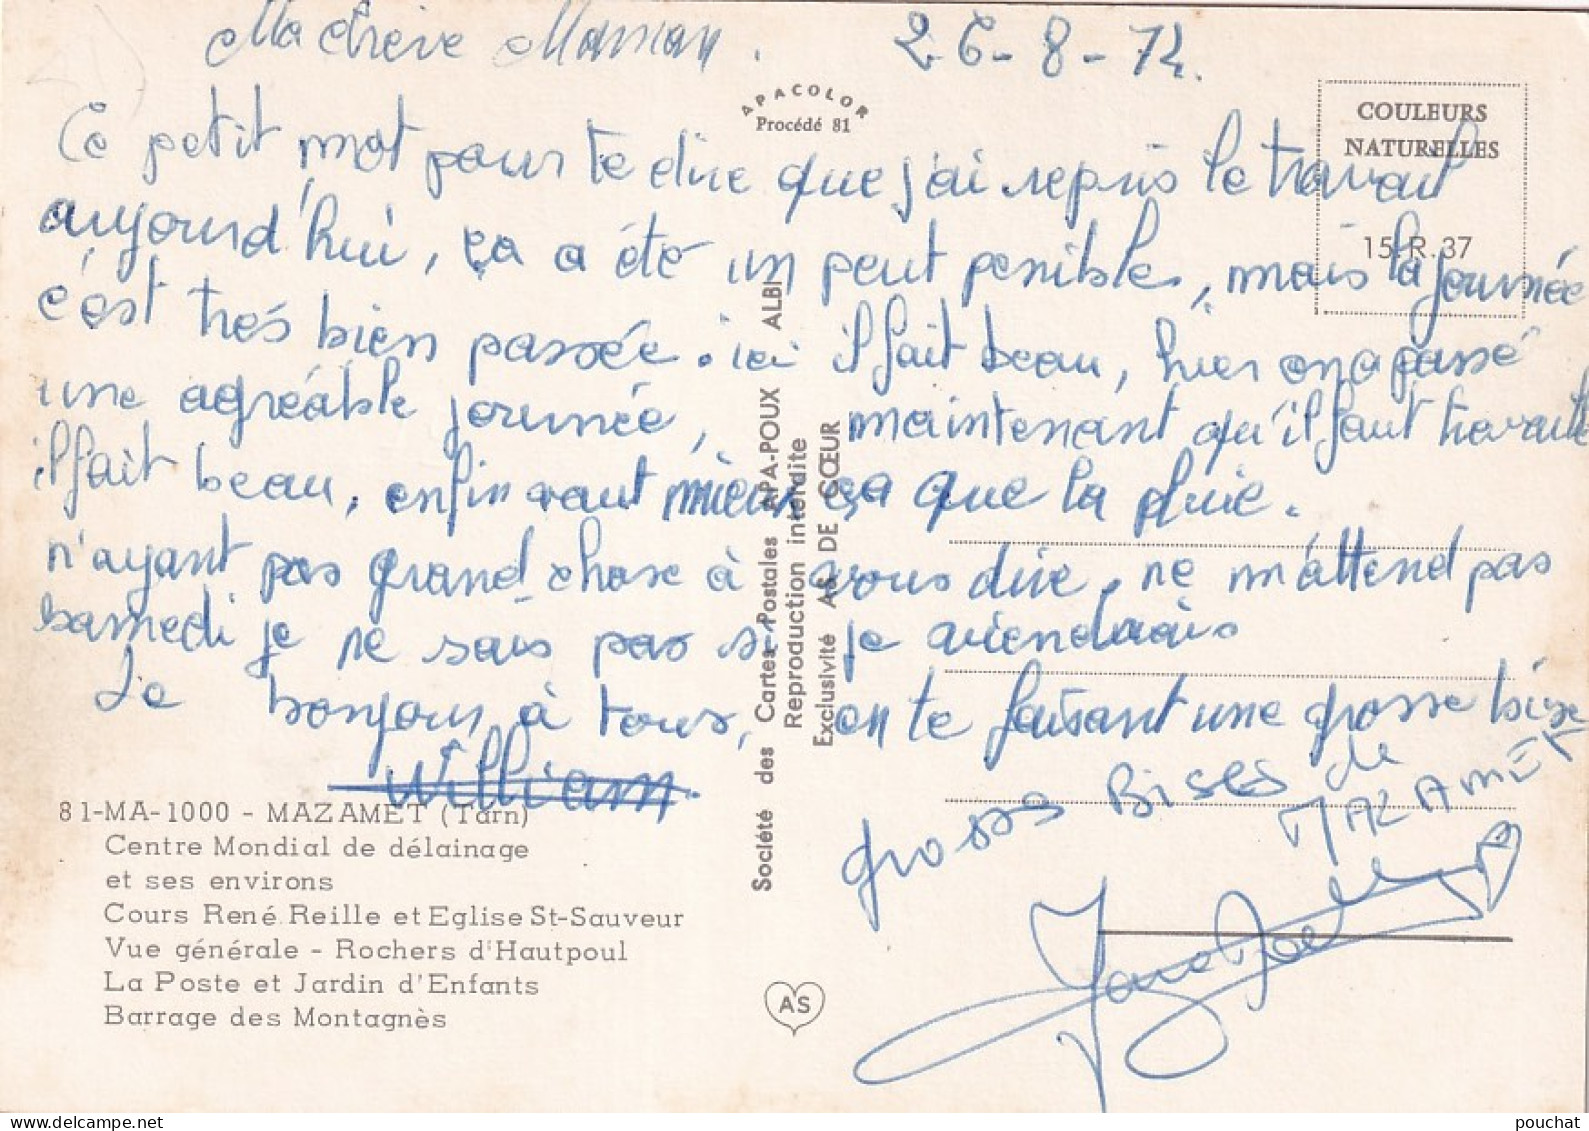 Ma chère Maman. 26-8-74.
APACOLOR
Procédé 81
COULEURS
NATURELLES
15.R.37
Ce petit mot pour te dire que j'ai repris le travail
aujourd'hui, ça a été un peut penible, mais la journée
c'est très bien passée. ici il fait beau, hier on a passé
une agréable journée, maintenant qu'il faut travaille
il fait beau, enfin vaut mieux ça que la pluie.
n'ayant pas grand chose à vous dire, ne m'attend pas
samedi je ne sais pas si je viendrais
Le bonjour à tous, en te faisant une grosse bise
William.
grosses Bises de
MAZAMET
81-MA-1000 - MAZAMET (Tarn)
Centre Mondial de délainage
et ses environs
Cours René Reille et Eglise St-Sauveur
Vue générale - Rochers d'Hautpoul
La Poste et Jardin d'Enfants
Barrage des Montagnès
Société des Cartes Postales APA-POUX ALBI
Reproduction interdite
Exclusivité AS DE CŒUR
AS
pouchat